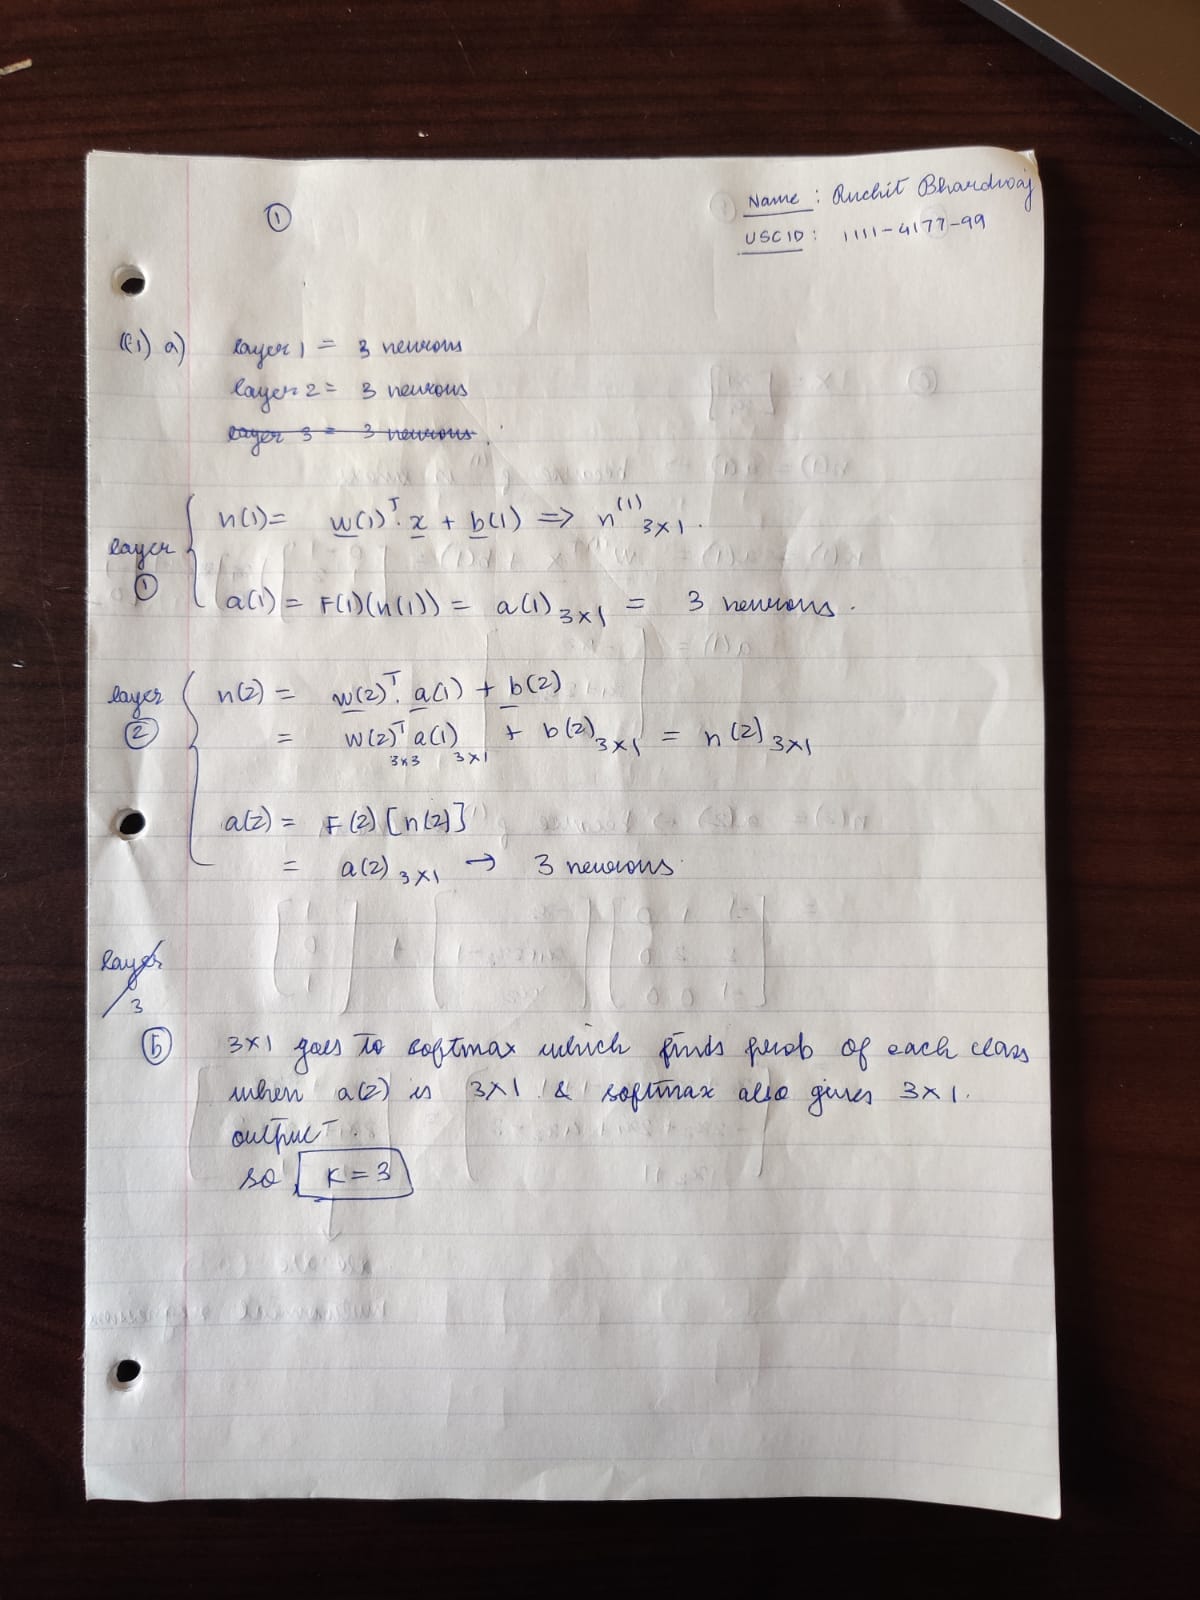 ①
Name : Ruchit Bhardwaj
USCID : 1111-4177-99
Q1) a) layer 1 = 3 neurons
layer 2 = 3 neurons
layer 3 = 3 neurons.
layer ①
n(1) = w(1)ᵀ. x + b(1) => n⁽¹⁾ 3×1.
a(1) = F(1)(n(1)) = a(1) 3×1 = 3 neurons.
layer ②
n(2) = w(2)ᵀ. a(1) + b(2)
= w(2)ᵀ 3×3 a(1) 3×1 + b(2) 3×1 = n(2) 3×1
a(2) = F(2)[n(2)]
= a(2) 3×1 → 3 neurons.
layer 3
b 3×1 goes to softmax which finds prob of each class
when a(2) is 3×1 & softmax also gives 3×1.
output.
so, K = 3